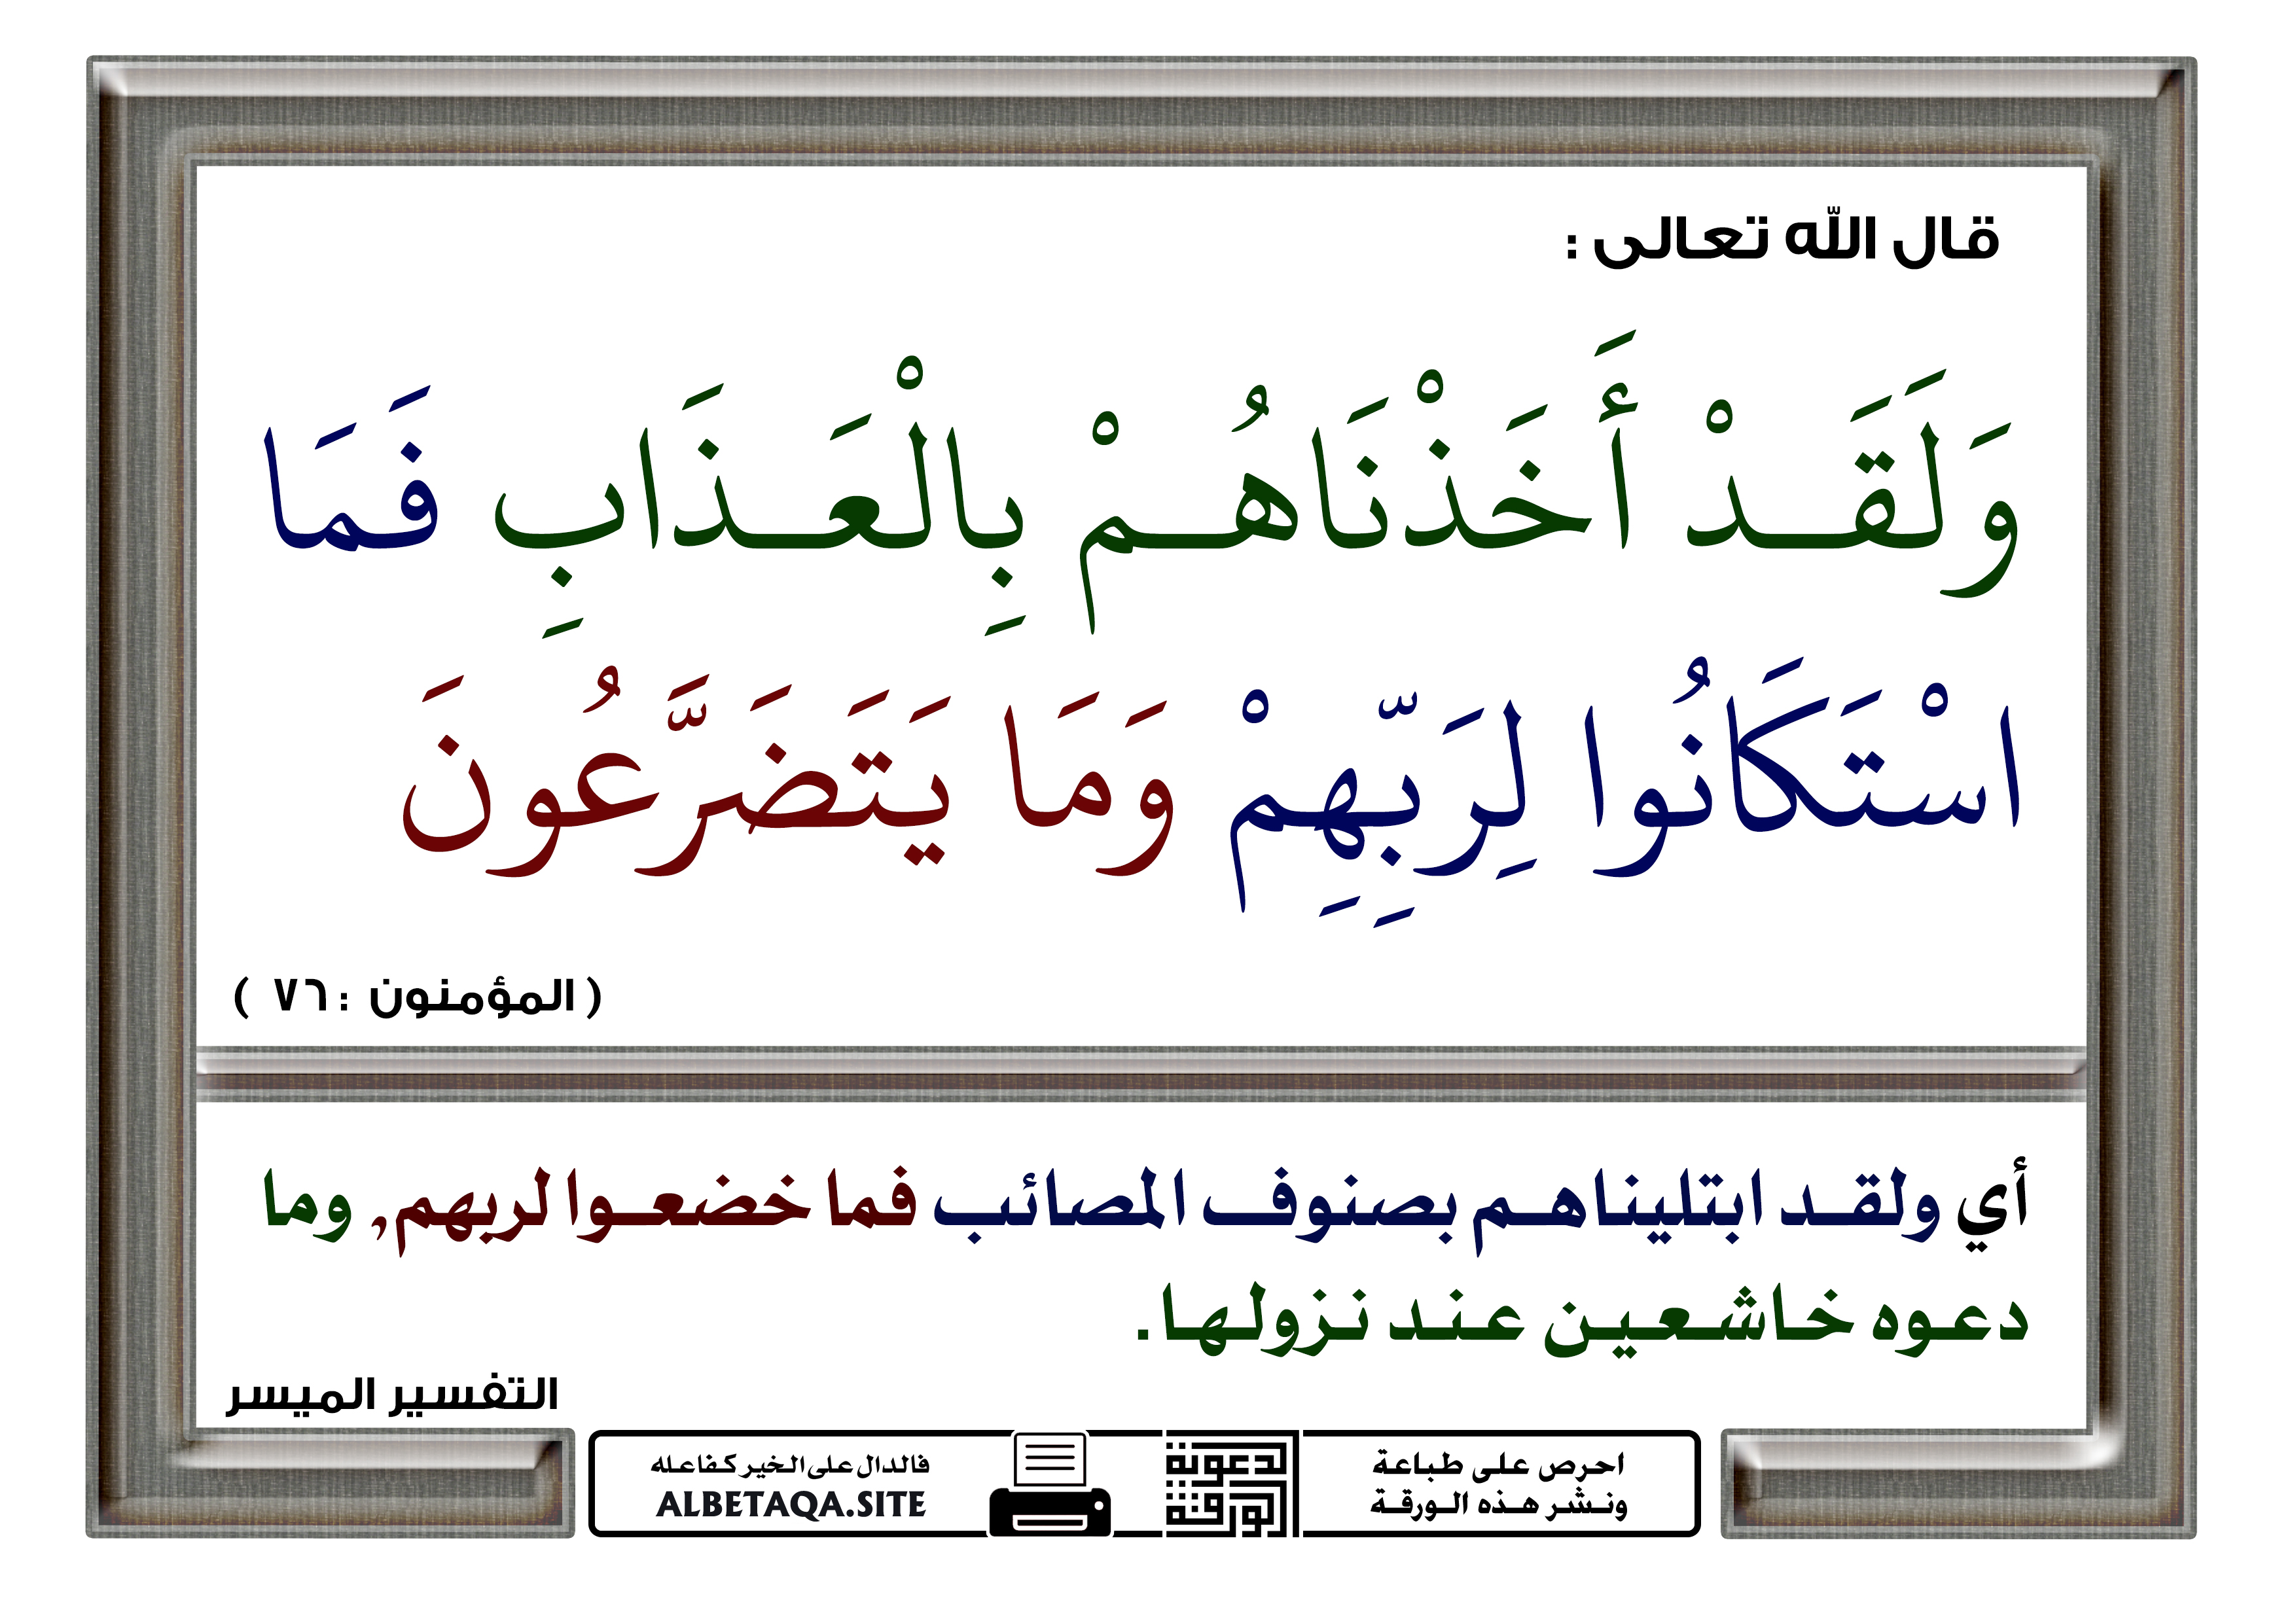 قال الله تعالى :
وَلَقَدْ أَخَذْنَاهُمْ بِالْعَذَابِ فَمَا
اسْتَكَانُوا لِرَبِّهِمْ وَمَا يَتَضَرَّعُونَ
( المؤمنون : ٧٦ )
أي ولقد ابتليناهم بصنوف المصائب فما خضعوا لربهم, وما
دعوه خاشعين عند نزولها.
التفسير الميسر
احرص على طباعة
ونشر هذه الورقة
الورقة
الدعوية
فالدال على الخير كفاعله
ALBETAQA.SITE